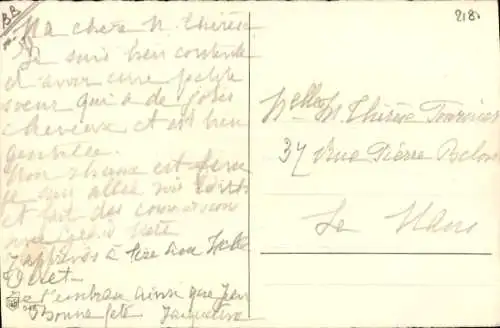 BB
218
Ma chère M. Thérèse
Je suis bien contente
d avoir une petite
sœur qui a de jolies
cheveux et est bien
gentille.
Mon rhume est
je suis allée
et fait des commissions
avec
à lire
Tiret
t'embrasse ainsi que Jean
Bonne fête Jacqueline
Melle M. Thérèse Fournier
37 Rue Pierre Belon
Le Mans